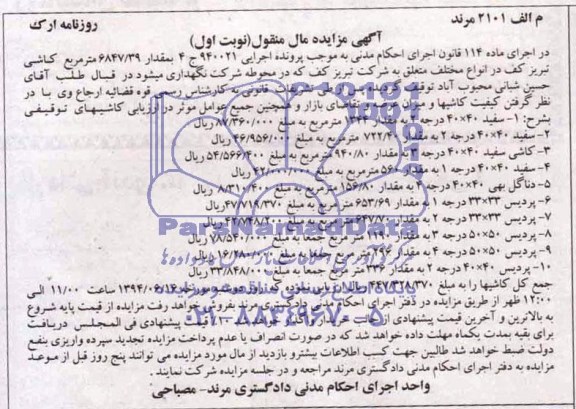 م الف ۲۱۰۱ مرند
روزنامه ارک
آگهی مزایده مال منقول(نوبت اول)
در اجرای ماده ۱۱۴ قانون اجرای احکام مدنی به موجب پرونده اجرایی ۹۴۰۰۲۱ ج ۴ بمقدار ۶۸۴۷/۳۹ مترمربع کاشی
تبریز کف در انواع مختلف متعلق به شرکت تبریز کف که در محوطه شرکت نگهداری میشود در قبال طلب آقای
حسین شبانی محبوب آباد توقیف گردیده و پس از طی تشریفات قانونی به کارشناس رسمی قوه قضائیه ارجاع وی با در
نظر گرفتن کیفیت کاشیها و میزان عرضه و تقاضای بازار و همچنین جمیع عوامل موثر در ارزیابی کاشیهای توقیفی
بشرح: ۱-سفید ۴۰×۴۰ درجه ۲ به مقدار ۱۳۴۴ مترمربع به مبلغ ۸۷/۳۶۰/۰۰۰ ریال
۲-سفید ۴۰×۴۰ درجه ۲ به مقدار ۷۲۲/۴۰ مترمربع به مبلغ ۴۶/۹۵۶/۰۰۰ ریال
۳-کاشی سفید ۴۰×۴۰ درجه ۲ به مقدار ۹۴۰/۸۰ مترمربع به مبلغ ۵۴/۵۶۶/۴۰۰ ریال
۴-سفید ۴۰×۴۰ درجه ۱ به مقدار ۵۶۰ مترمربع به مبلغ ۴۲/۰۰۰/۰۰۰ ریال
۵-دناگل بهی ۴۰×۴۰ درجه ۴ به مقدار ۱۵۶/۸۰ مترمربع به مبلغ ۸/۳۱۰/۴۰۰ ریال
۶- پردیس ۳۳×۳۳ درجه ۱ به مقدار ۶۵۳/۶۹ متر مربع به مبلغ ۴۷/۷۱۹/۳۷۰ ریال
۷- پردیس ۳۳×۳۳ درجه ۲ به مقدار ۶۴۷/۷۰ متر مربع به مبلغ ۴۲/۷۴۸/۲۰۰ ریال
۸- پردیس ۵۰×۵۰ درجه ۳ به مقدار متر مربع جمعا به مبلغ ۷۸/۵۴۰/۰۰۰ ریال
۹- پردیس ۵۰×۵۰ درجه ۴ به مقدار متر مربع جمعا به مبلغ ریال
۱۰- پردیس ۴۰×۴۰ درجه ۲ به مقدار ۴۳۶ متر مربع جمعا به مبلغ ۳۳/۸۴۸/۰۰۰ ریال
جمع کل کاشیها را به مبلغ ریال ارزیابی نموده که روز دوشنبه مورخه ۱۳۹۴/۰۵/۱۶ ساعت ۱۱/۰۰ الی
۱۲:۰۰ ظهر از طریق مزایده در دفتر اجرای احکام مدنی دادگستری مرند بفروش خواهد رفت مزایده از قیمت پایه شروع
به بالاترین و آخرین قیمت پیشنهادی از خریدار خواهد شد ۱۰٪ قیمت پیشنهادی فی المجلس دریافت
برای بقیه بمدت یکماه مهلت داده خواهد شد که در صورت انصراف یا عدم پرداخت مزایده تجدید سپرده واریزی بنفع
دولت ضبط خواهد شد طالبین جهت کسب اطلاعات بیشترو بازدید از مال مورد مزایده می توانند پنج روز قبل از موعد
مزایده به دفتر اجرای احکام مدنی دادگستری مرند مراجعه و در جلسه مزایده شرکت نمایند.
واحد اجرای احکام مدنی دادگستری مرند- مصباحی
ParsNamadData
۰۲۱-۸۸۳۴۹۶۷۰-۵